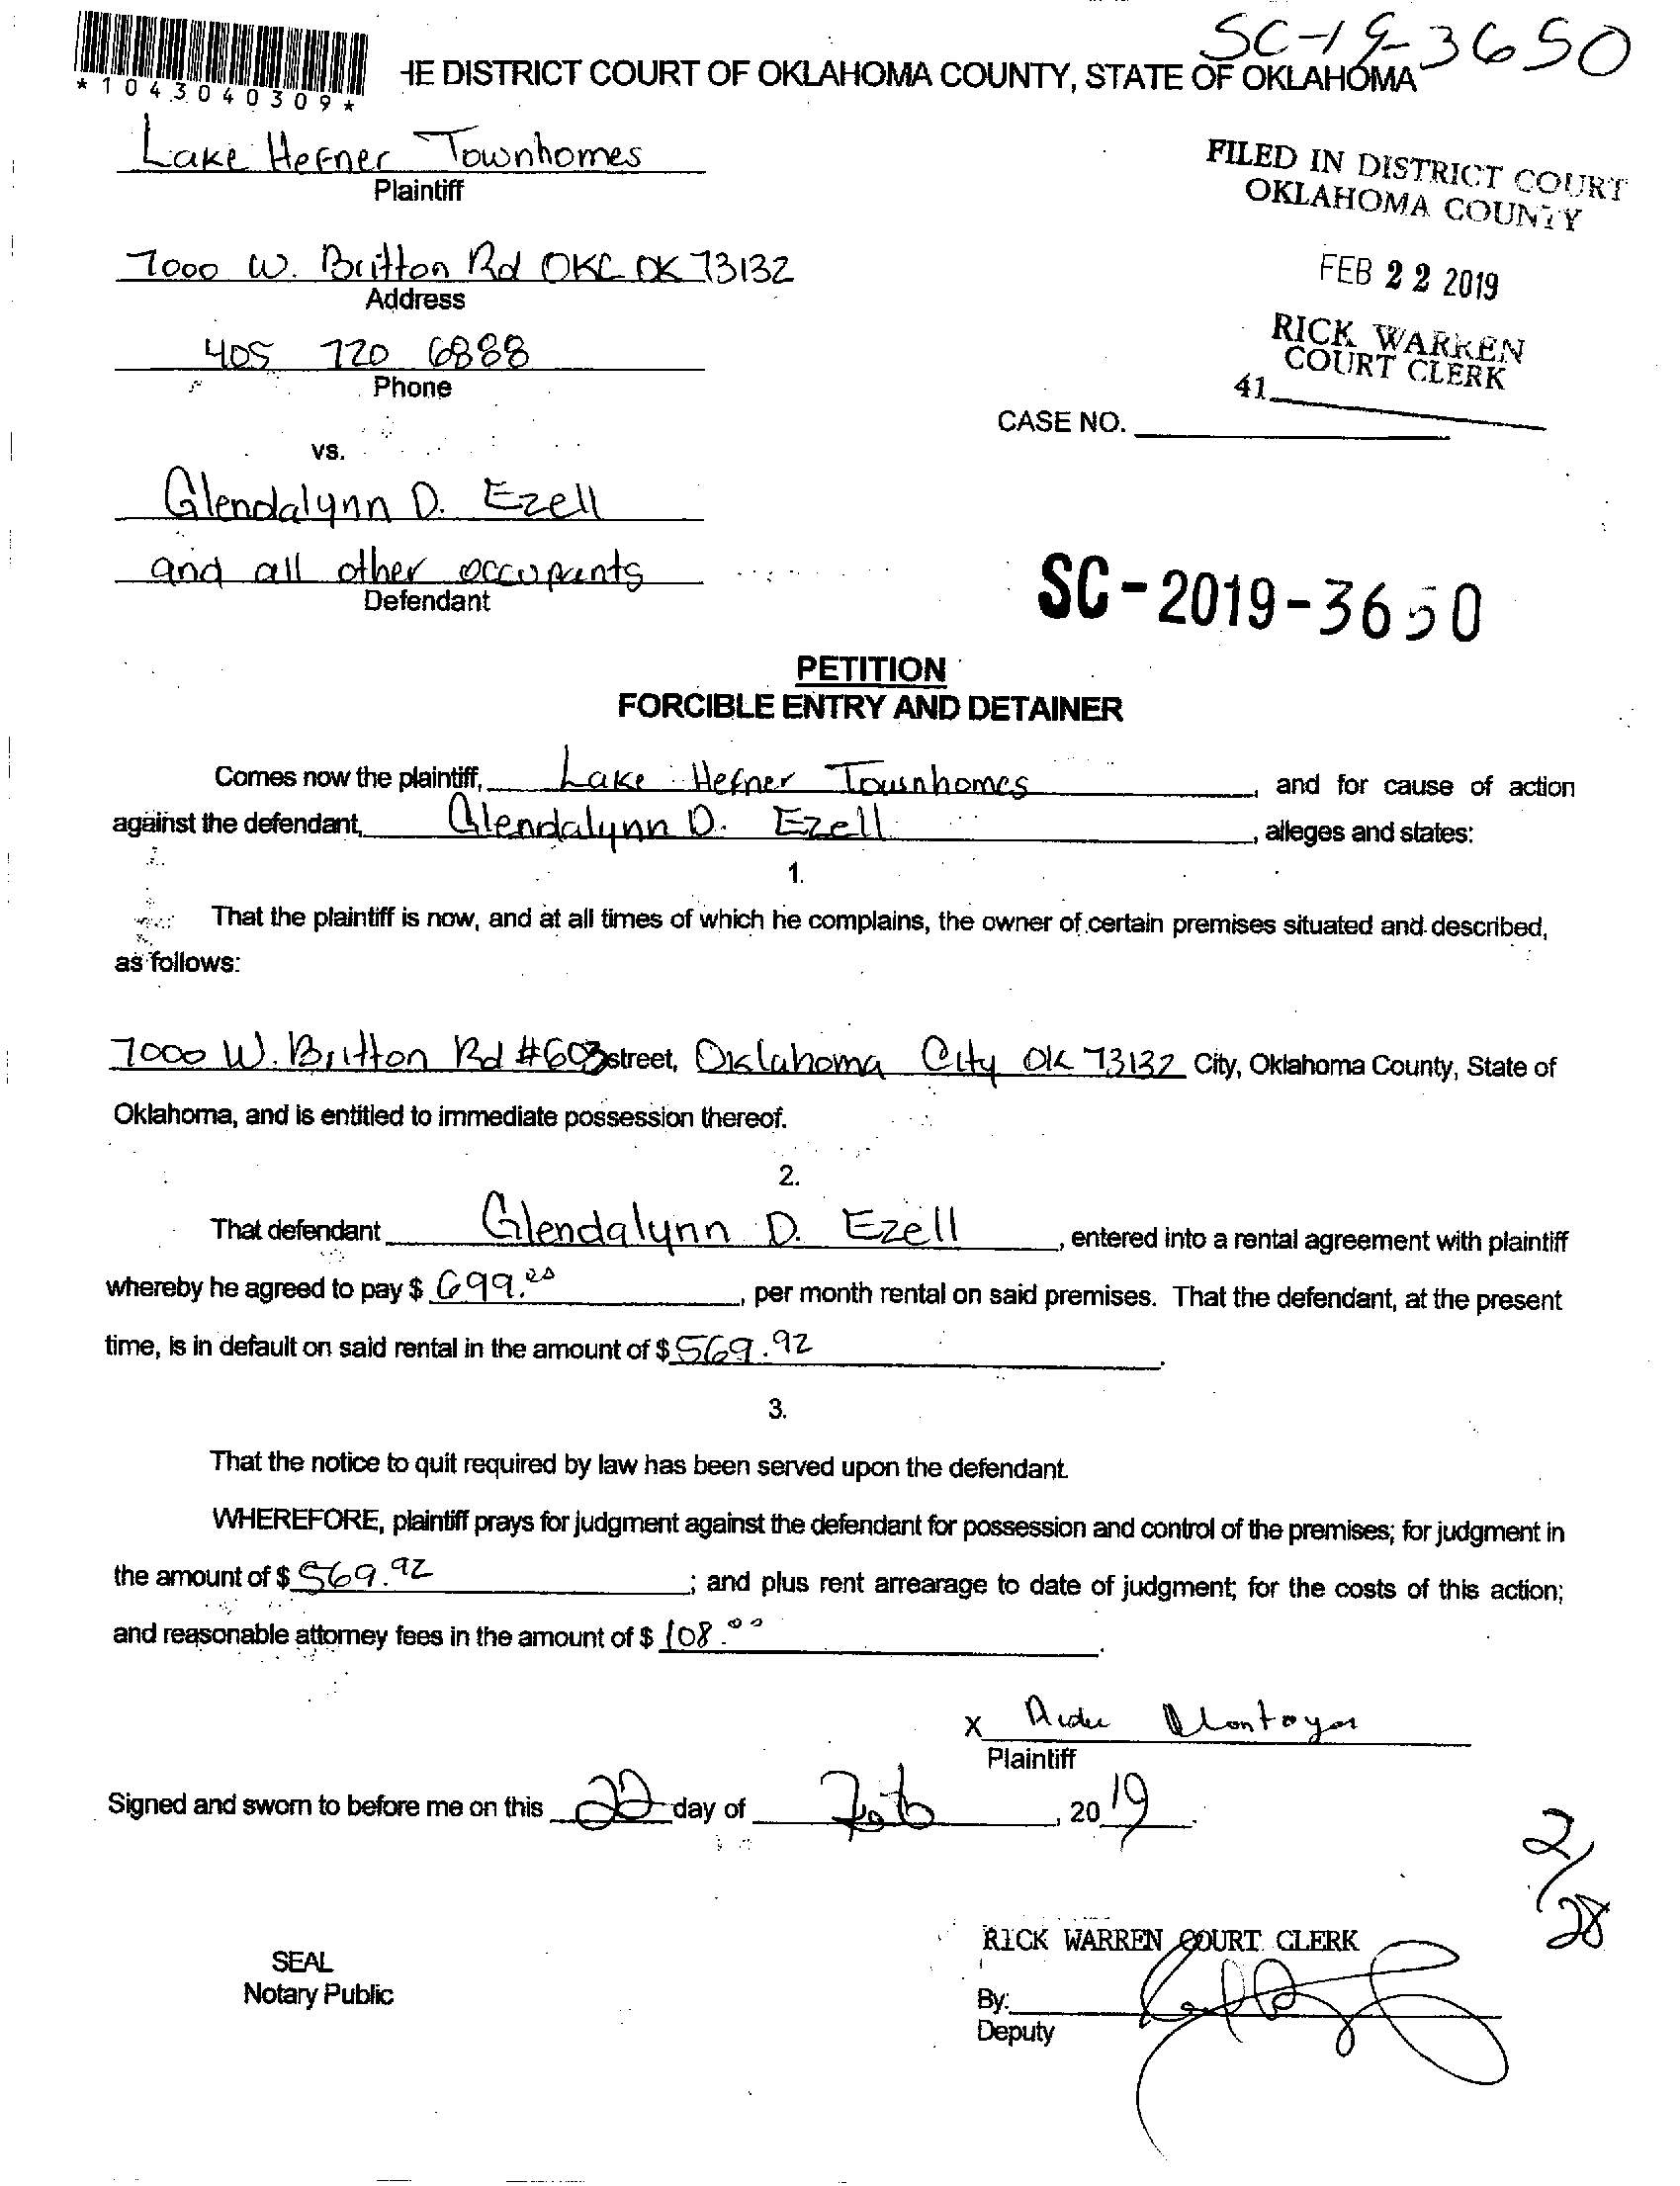 SC-19-3650
*1043040309*
HE DISTRICT COURT OF OKLAHOMA COUNTY, STATE OF OKLAHOMA
Lake Hefner Townhomes
Plaintiff
FILED IN DISTRICT COURT
OKLAHOMA COUNTY
7000 W. Britton Rd OKC OK 73132
Address
FEB 22 2019
405 720 6888
Phone
RICK WARREN
COURT CLERK
41
CASE NO.
vs.
Glendalynn D. Ezell
and all other occupants
Defendant
SC-2019-3650
PETITION
FORCIBLE ENTRY AND DETAINER
Comes now the plaintiff, Lake Hefner Townhomes, and for cause of action
against the defendant, Glendalynn D. Ezell, alleges and states:
1.
That the plaintiff is now, and at all times of which he complains, the owner of certain premises situated and described,
as follows:
7000 W. Britton Rd #603 street, Oklahoma City OK 73132 City, Oklahoma County, State of
Oklahoma, and is entitled to immediate possession thereof.
2.
That defendant Glendalynn D. Ezell, entered into a rental agreement with plaintiff
whereby he agreed to pay $ 699.00, per month rental on said premises. That the defendant, at the present
time, is in default on said rental in the amount of $ 569.92.
3.
That the notice to quit required by law has been served upon the defendant.
WHEREFORE, plaintiff prays for judgment against the defendant for possession and control of the premises; for judgment in
the amount of $ 569.92; and plus rent arrearage to date of judgment; for the costs of this action;
and reasonable attorney fees in the amount of $ 108.00.
X Montoya
Plaintiff
Signed and sworn to before me on this 22 day of Feb, 2019.
2/28
RICK WARREN COURT CLERK
SEAL
Notary Public
By:
Deputy